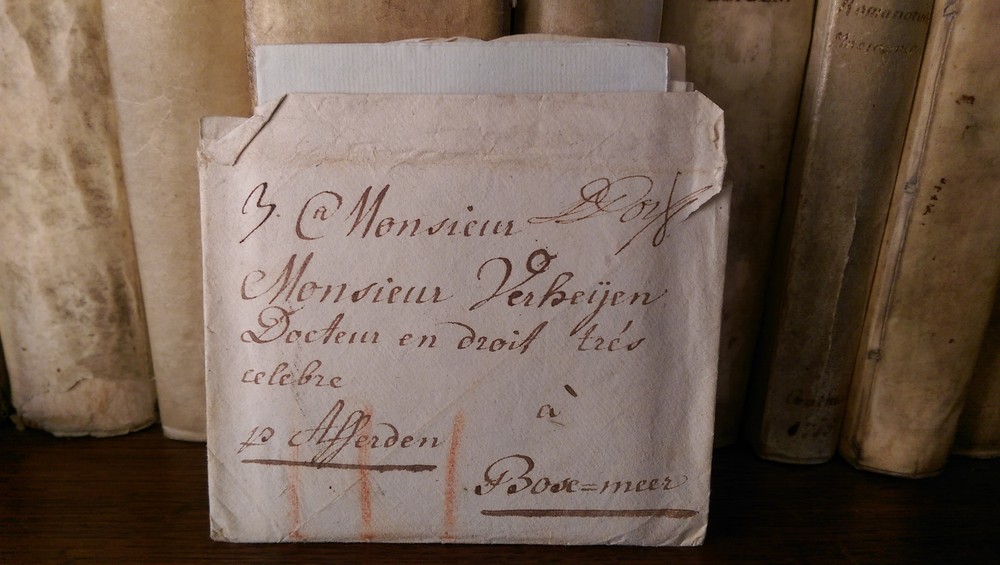 3. A Monsieur
Monsieur Verheijen
Docteur en droit trés
celebre
à
p Afferden
Boxe=meer